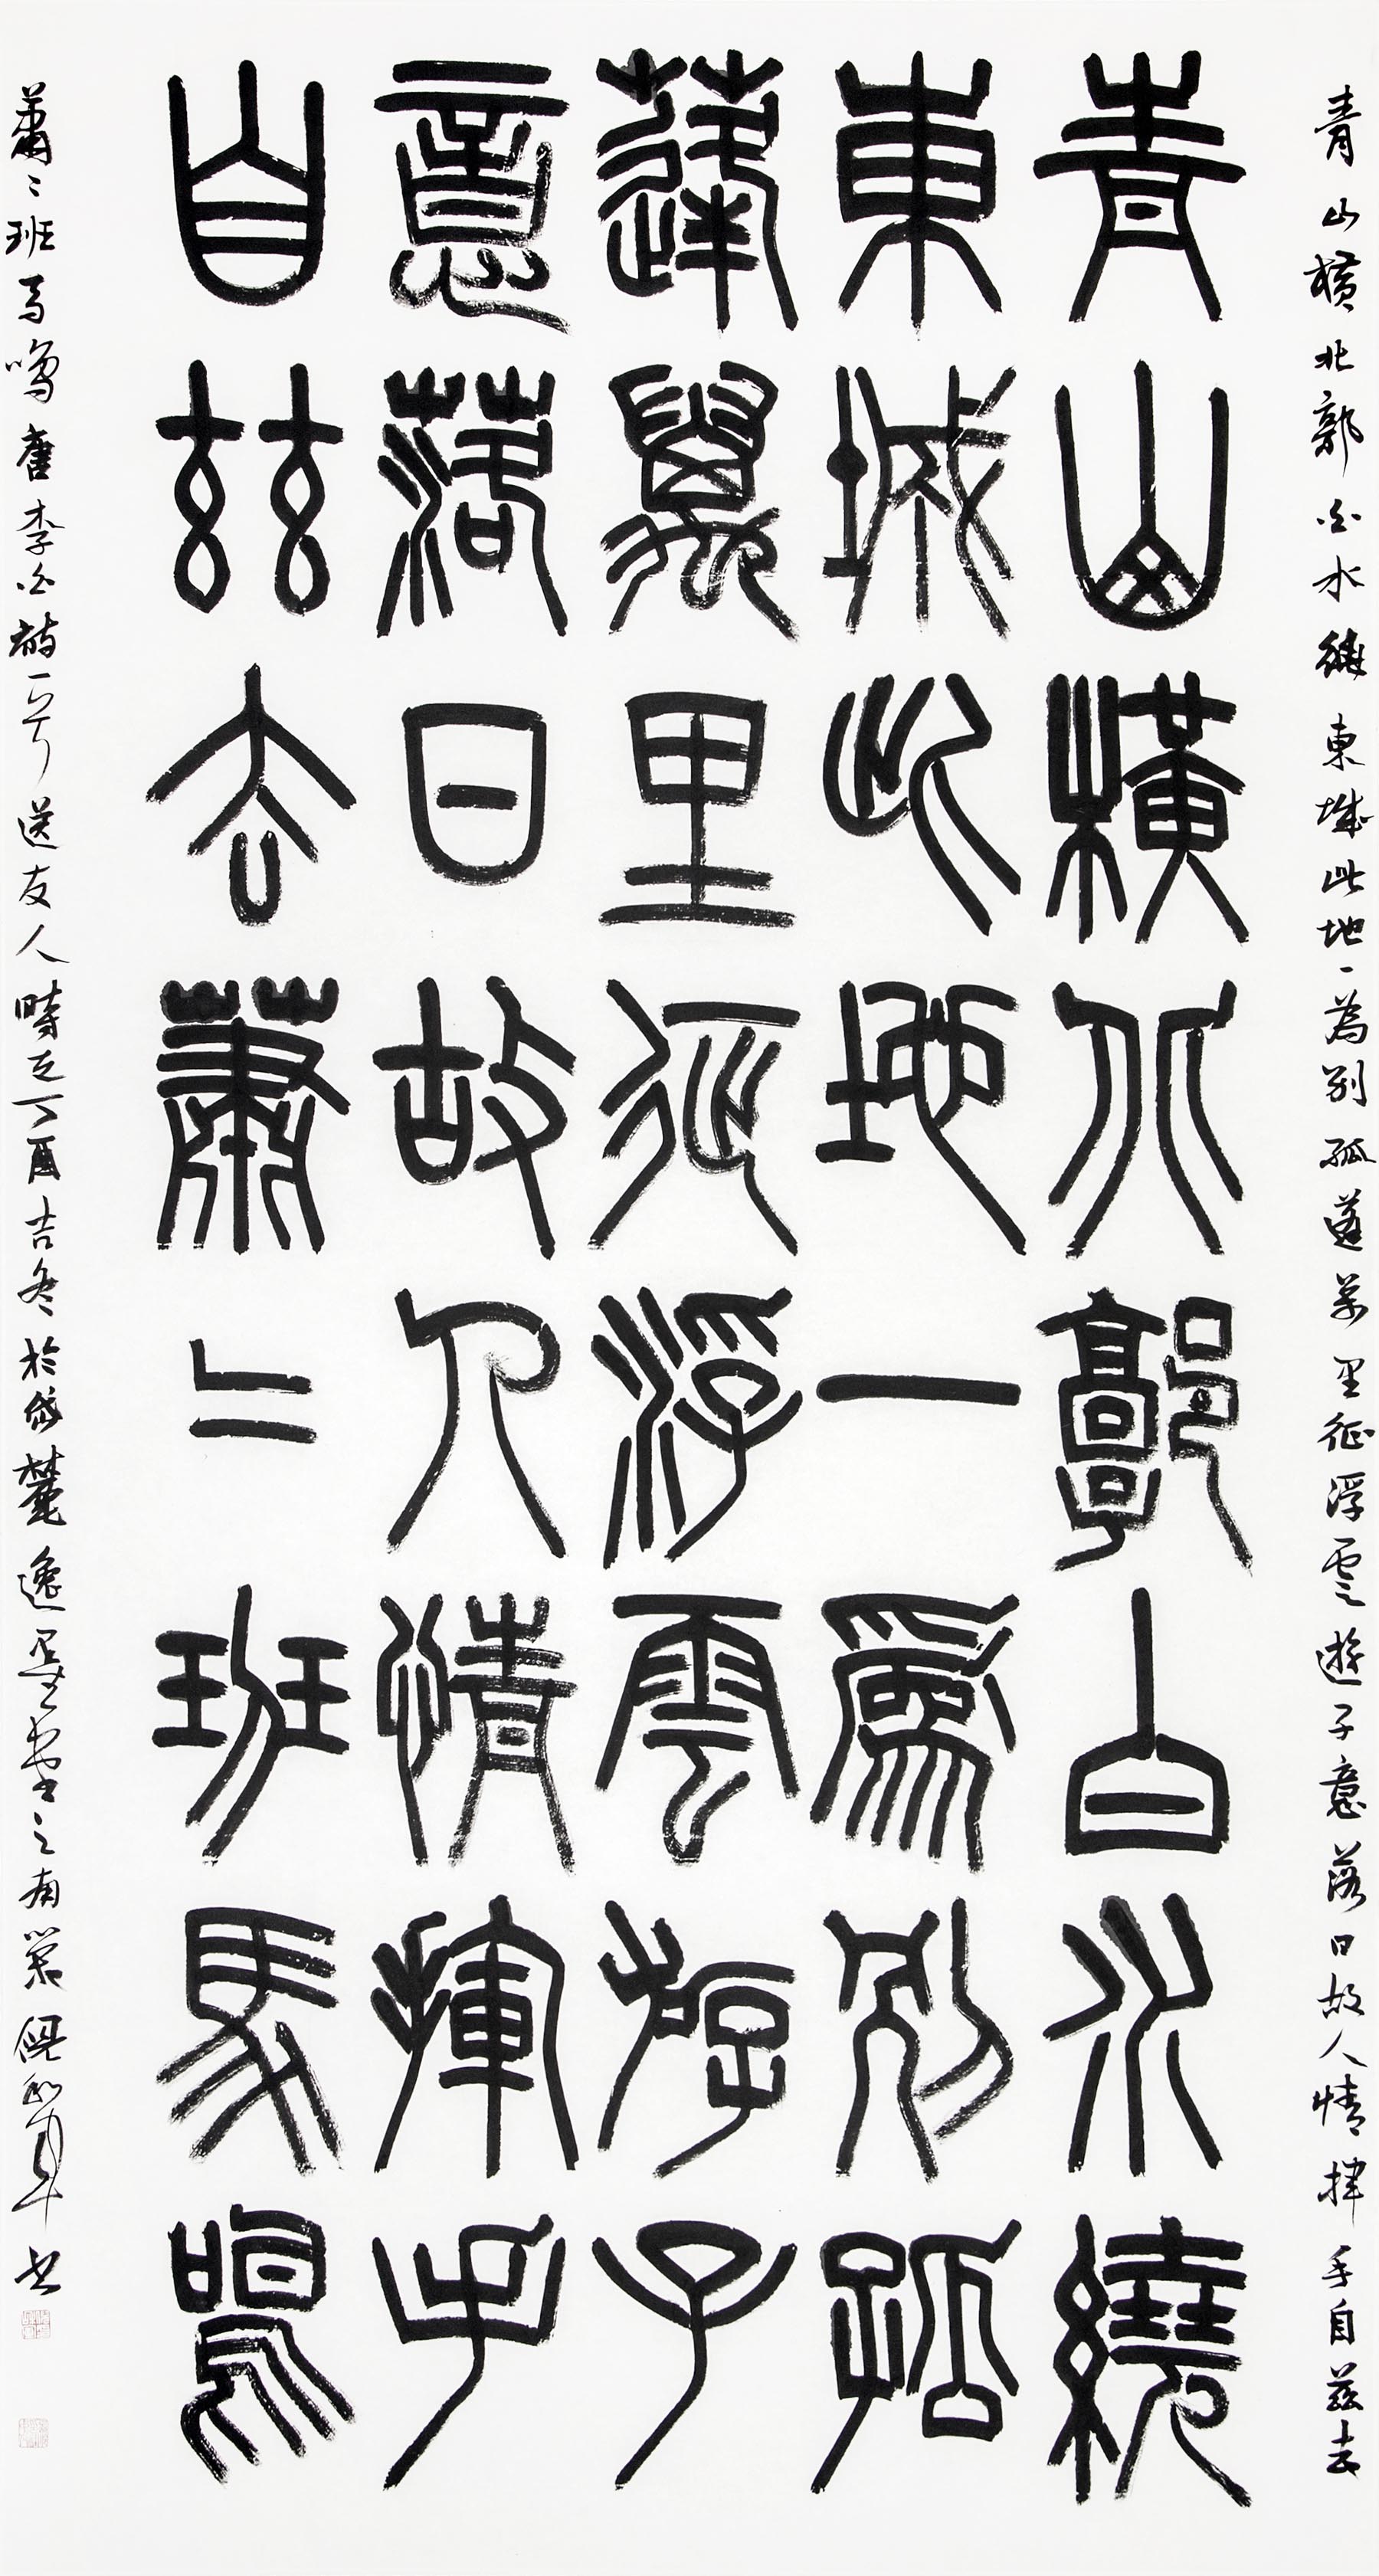 青山橫北郭白水繞東城此地一為別孤蓬萬里征浮雲遊子意落日故人情揮手自茲去
青山橫北郭白水繞
東城此地一爲別孤
蓬萬里征浮雲游子
意落日故人情揮手
自茲去蕭〻班馬鳴
蕭〻班馬鳴唐李白詩一首送友人時在丁酉吉冬於岱麓逸墨堂之南窗倪和軍书